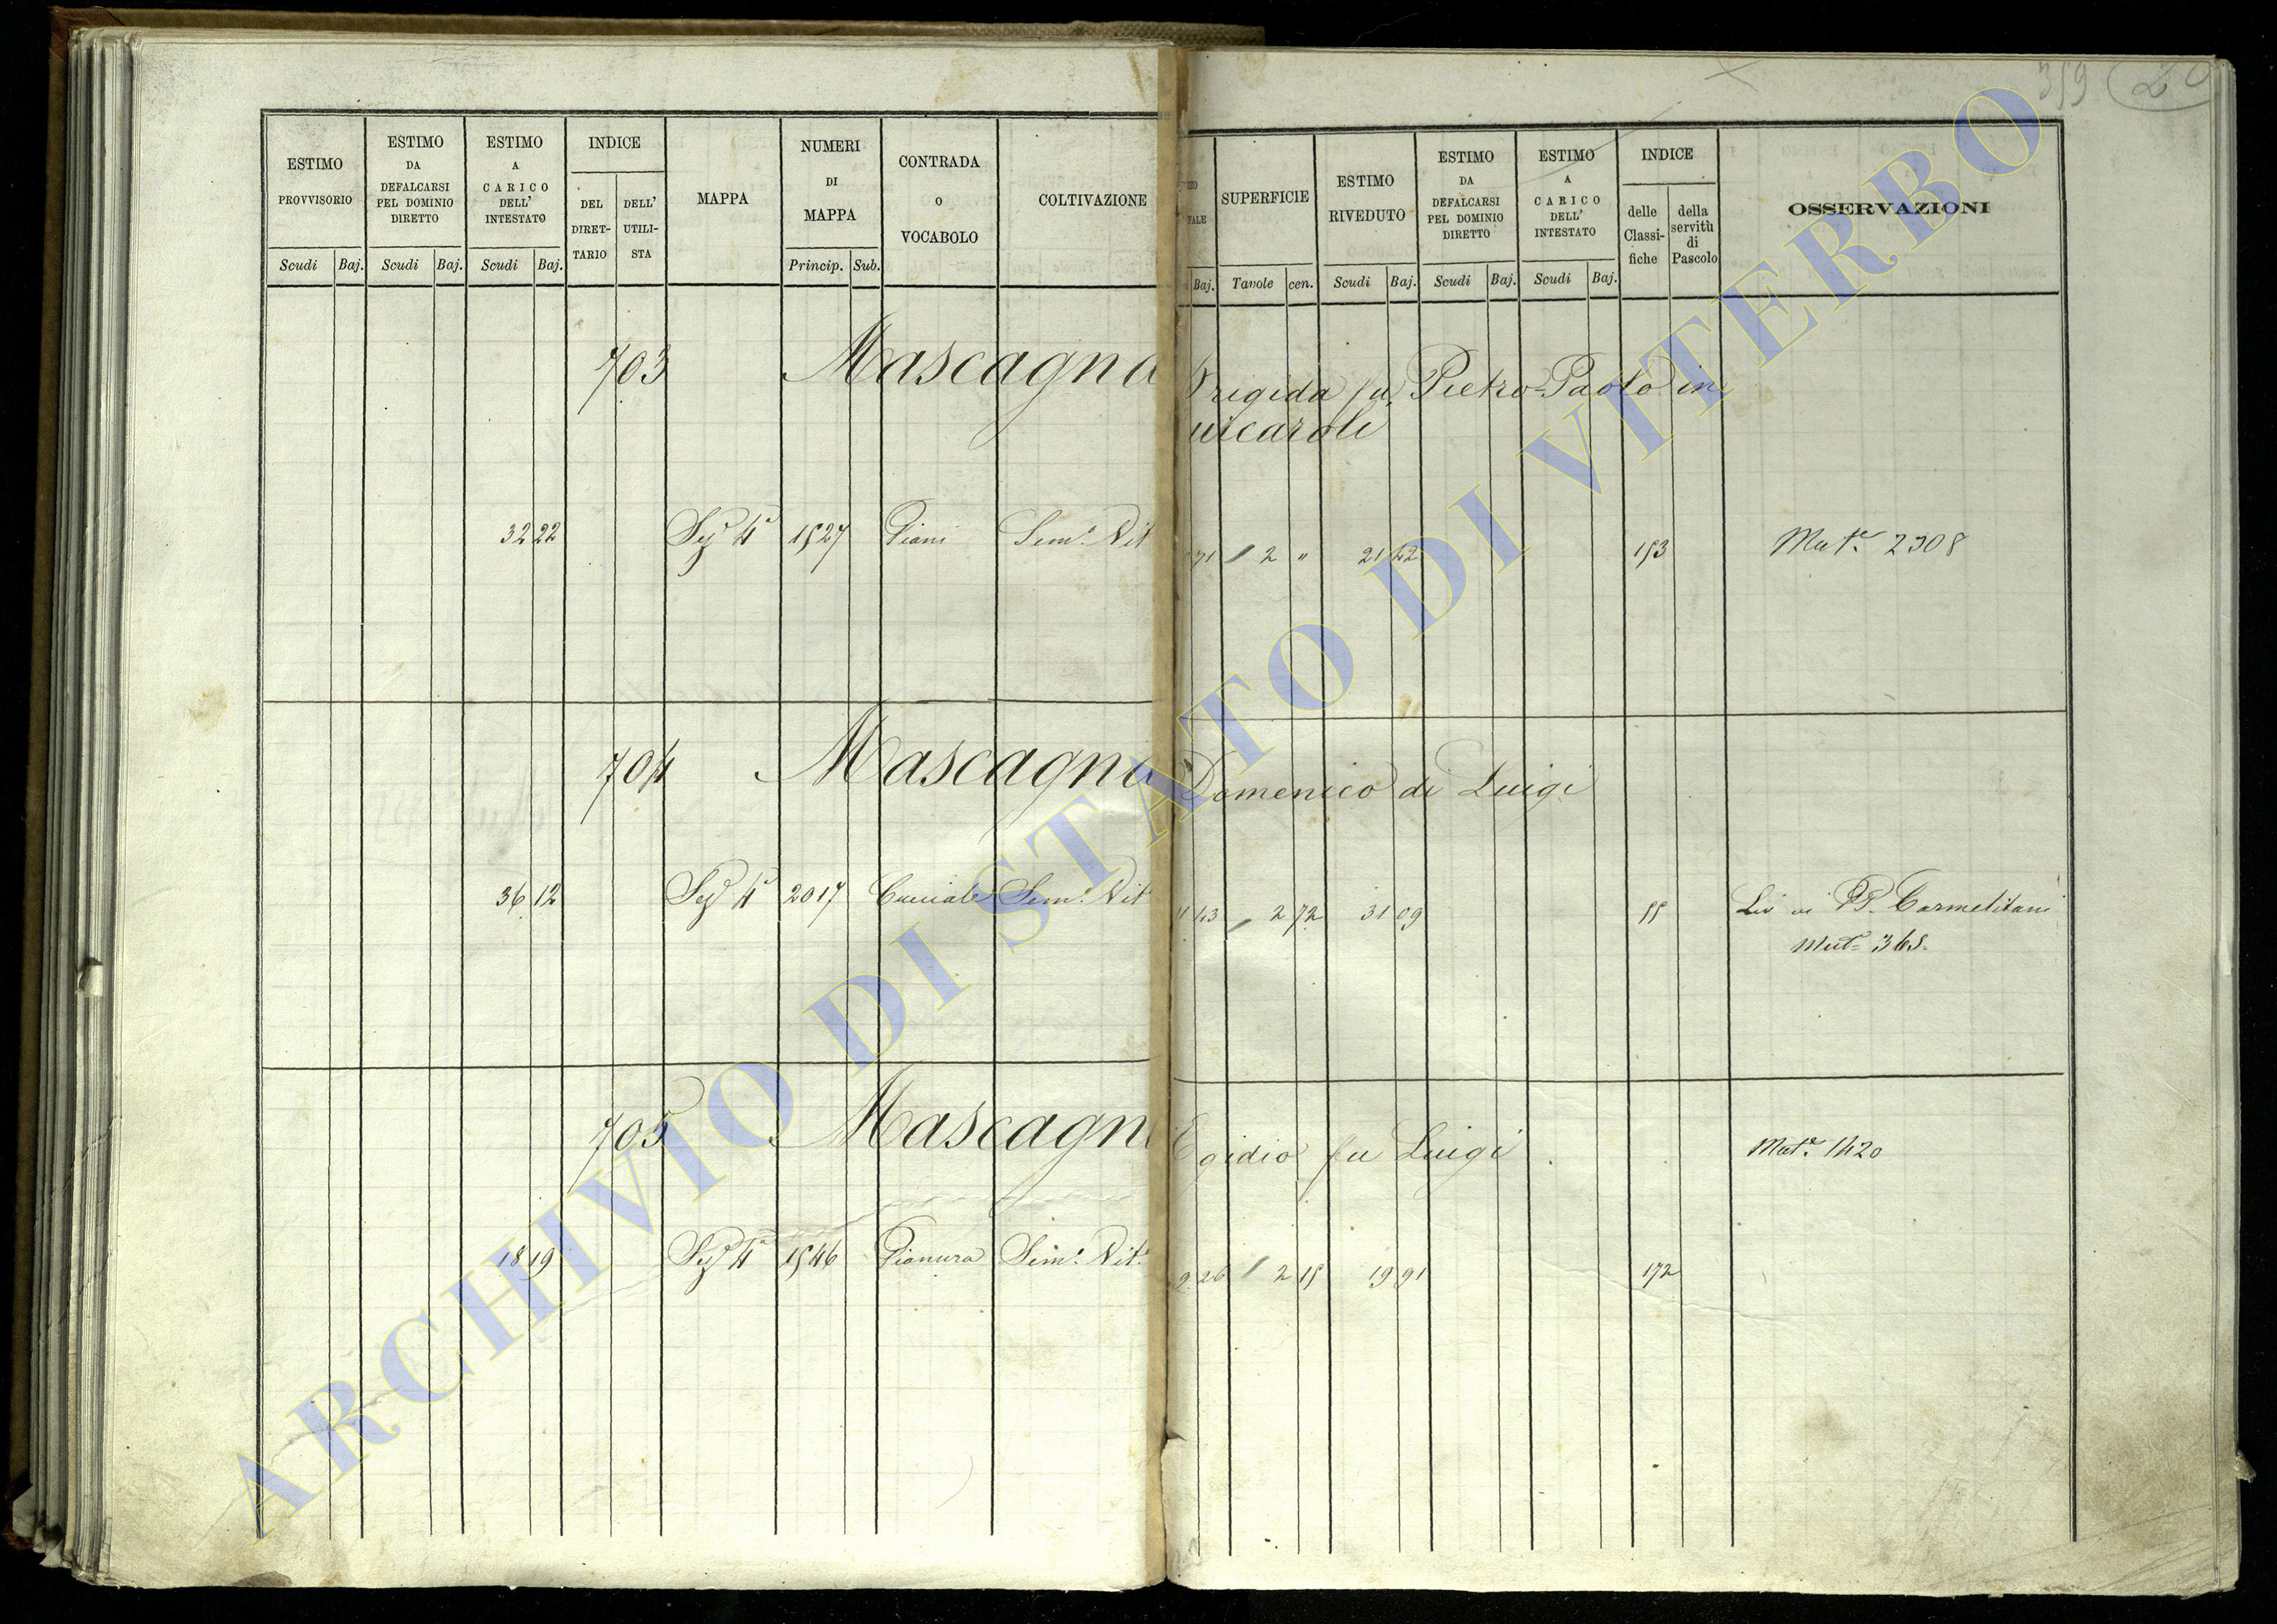 359
ESTIMO PROVVISORIO
Scudi Baj.
ESTIMO DA DEFALCARSI PEL DOMINIO DIRETTO
Scudi Baj.
ESTIMO A CARICO DELL' INTESTATO
Scudi Baj.
INDICE
DEL DIRET-TARIO
DELL' UTILI-STA
MAPPA
NUMERI DI MAPPA
Princip. Sub.
CONTRADA o VOCABOLO
COLTIVAZIONE
Baj.
SUPERFICIE
Tavole cen.
ESTIMO RIVEDUTO
Scudi Baj.
ESTIMO DA DEFALCARSI PEL DOMINIO DIRETTO
Scudi Baj.
ESTIMO A CARICO DELL' INTESTATO
Scudi Baj.
INDICE
delle Classi-fiche
della servitù di Pascolo
OSSERVAZIONI
703 Mascagna
rigida fu Pietro-Paolo in
uicaroli
32 22 Sez. 4a 1527 Piani Sem.o Vit
71 2 " 21 42 153 Mut.e 2308
704 Mascagna
Domenico di Luigi
36 12 Sez. 4a 2017 Sem.o Vit
43 2 72 31 09 55 Liv ai PP. Carmelitani
Mut.e 365
705 Mascagn
Egidio fu Luigi Mut.e 1420
18 19 Sez. 4a 1546 Pianura Sem.o Vit.o
9 26 2 15 19 91 172
ARCHIVIO DI STATO DI VITERBO